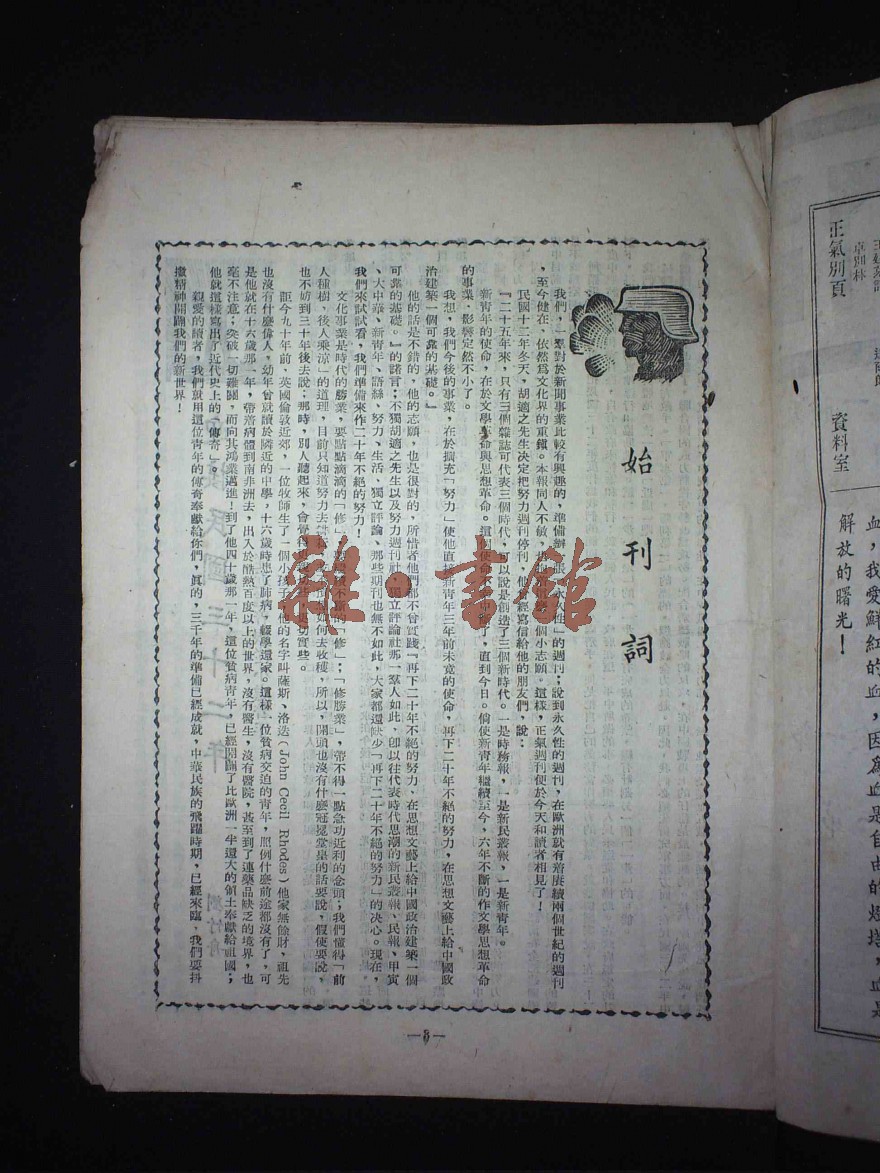 始刊詞
我們，一羣對於新聞事業比較有興趣的，準備辦一張「永久性」的週刊；說到永久性的週刊，在歐洲就有着賡續兩個世紀的週刊
，至今健在，依然爲文化界的重鎭。本報同人不敏，個小志願。這樣，正氣週刊便於今天和讀者相見了！
民國十二年冬天，胡適之先生决定把努力週刊停刊，他曾經寫信給他的朋友們，說：
『二十五年來，只有三個雜誌可代表三個時代，可以說是創造了三個新時代。一是時務報，一是新民叢報，一是新青年。
新青年的使命，在於文學革命與思想革命。這個使命不幸中斷了，直到今日。倘使新青年繼續至今，六年不斷的作文學思想革命
的事業，影響定然不小了。
我想，我們今後的事業，在於擴充「努力」使他直接新青年三年前未竟的使命，再下二十年不絕的努力，在思想文藝上給中國政
治建築一個可靠的基礎。』
他的話是不錯的，他的志願，也是很對的，所惜者他們都不曾實踐『再下二十年不絕的努力，在思想文藝上給中國政治建築一個
可靠的基礎。』的諾言；不獨胡適之先生以及努力週刊社獨立評論社那一羣人如此，卽以往代表時代思潮的新民叢報、民報、甲寅
、大中華、新青年、語絲、努力、生活、獨立評論，那些期刊也無不如此，大家都還缺少「再下二十年不絕的努力」的决心。現在，
我們來試試看，我們準備來作二十年不絕的努力！
文化事業是時代的勝業，要點點滴滴的「修」，不斷的「修」；「修勝業」，帶不得一點急功近利的念頭；我們懂得「前
人種樹，後人乘涼」的道理，目前只知道努力去如何去收穫，所以，開頭也沒有什麼冠冕堂皇的話要說，假使要說，
也不妨到三十年後去說；那時，別人聽起來，會覺得切實些。
距今九十年前，英國倫敦近郊，一位牧師生了一個小孩子，他的名字叫薩斯、洛迭（John Cecil Rhodes）他家無餘財，祖先
也沒有什麼偉人，幼年曾就讀於隣近的中學，十六歲時患了肺病，輟學還家。這樣一位貧病交迫的青年，照例什麼前途都沒有了，可
是他就在十六歲那一年，帶着病體到南非洲去，出入於酷熱百度以上的世界，沒有醫生，沒有醫院，甚至到了連藥品缺乏的境界，也
毫不注意；突破一切難關，而向其鴻業邁進！到了他四十歲那一年，這位貧病青年，已經開闢了比歐洲一半還大的領土奉獻給祖國；
他就這樣寫出了近代史上的「傳奇」。
親愛的讀者，我們就用這位青年的傳奇奉獻給你們，眞的，三千年的準備已經成就，中華民族的飛躍時期，已經來臨，我們要抖
擻精神開闢我們的新世界！
—3—
雜·書館
正氣別頁
卓別林
資料室
血，我愛鮮紅的血，因爲血是自由的燈塔，血是
解放的曙光！